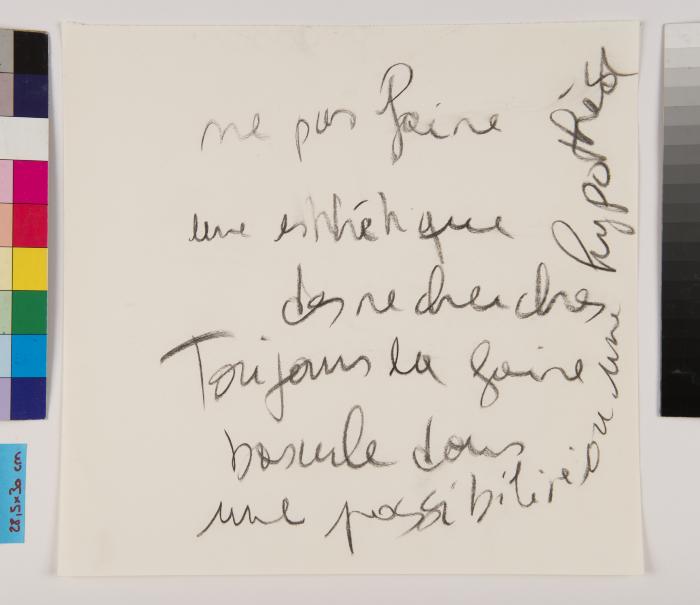 ne pas faire
une esthétique
des recherches
Toujours la faire
bascule dans
une possibilité ou une hypothèse
28,5x30 cm